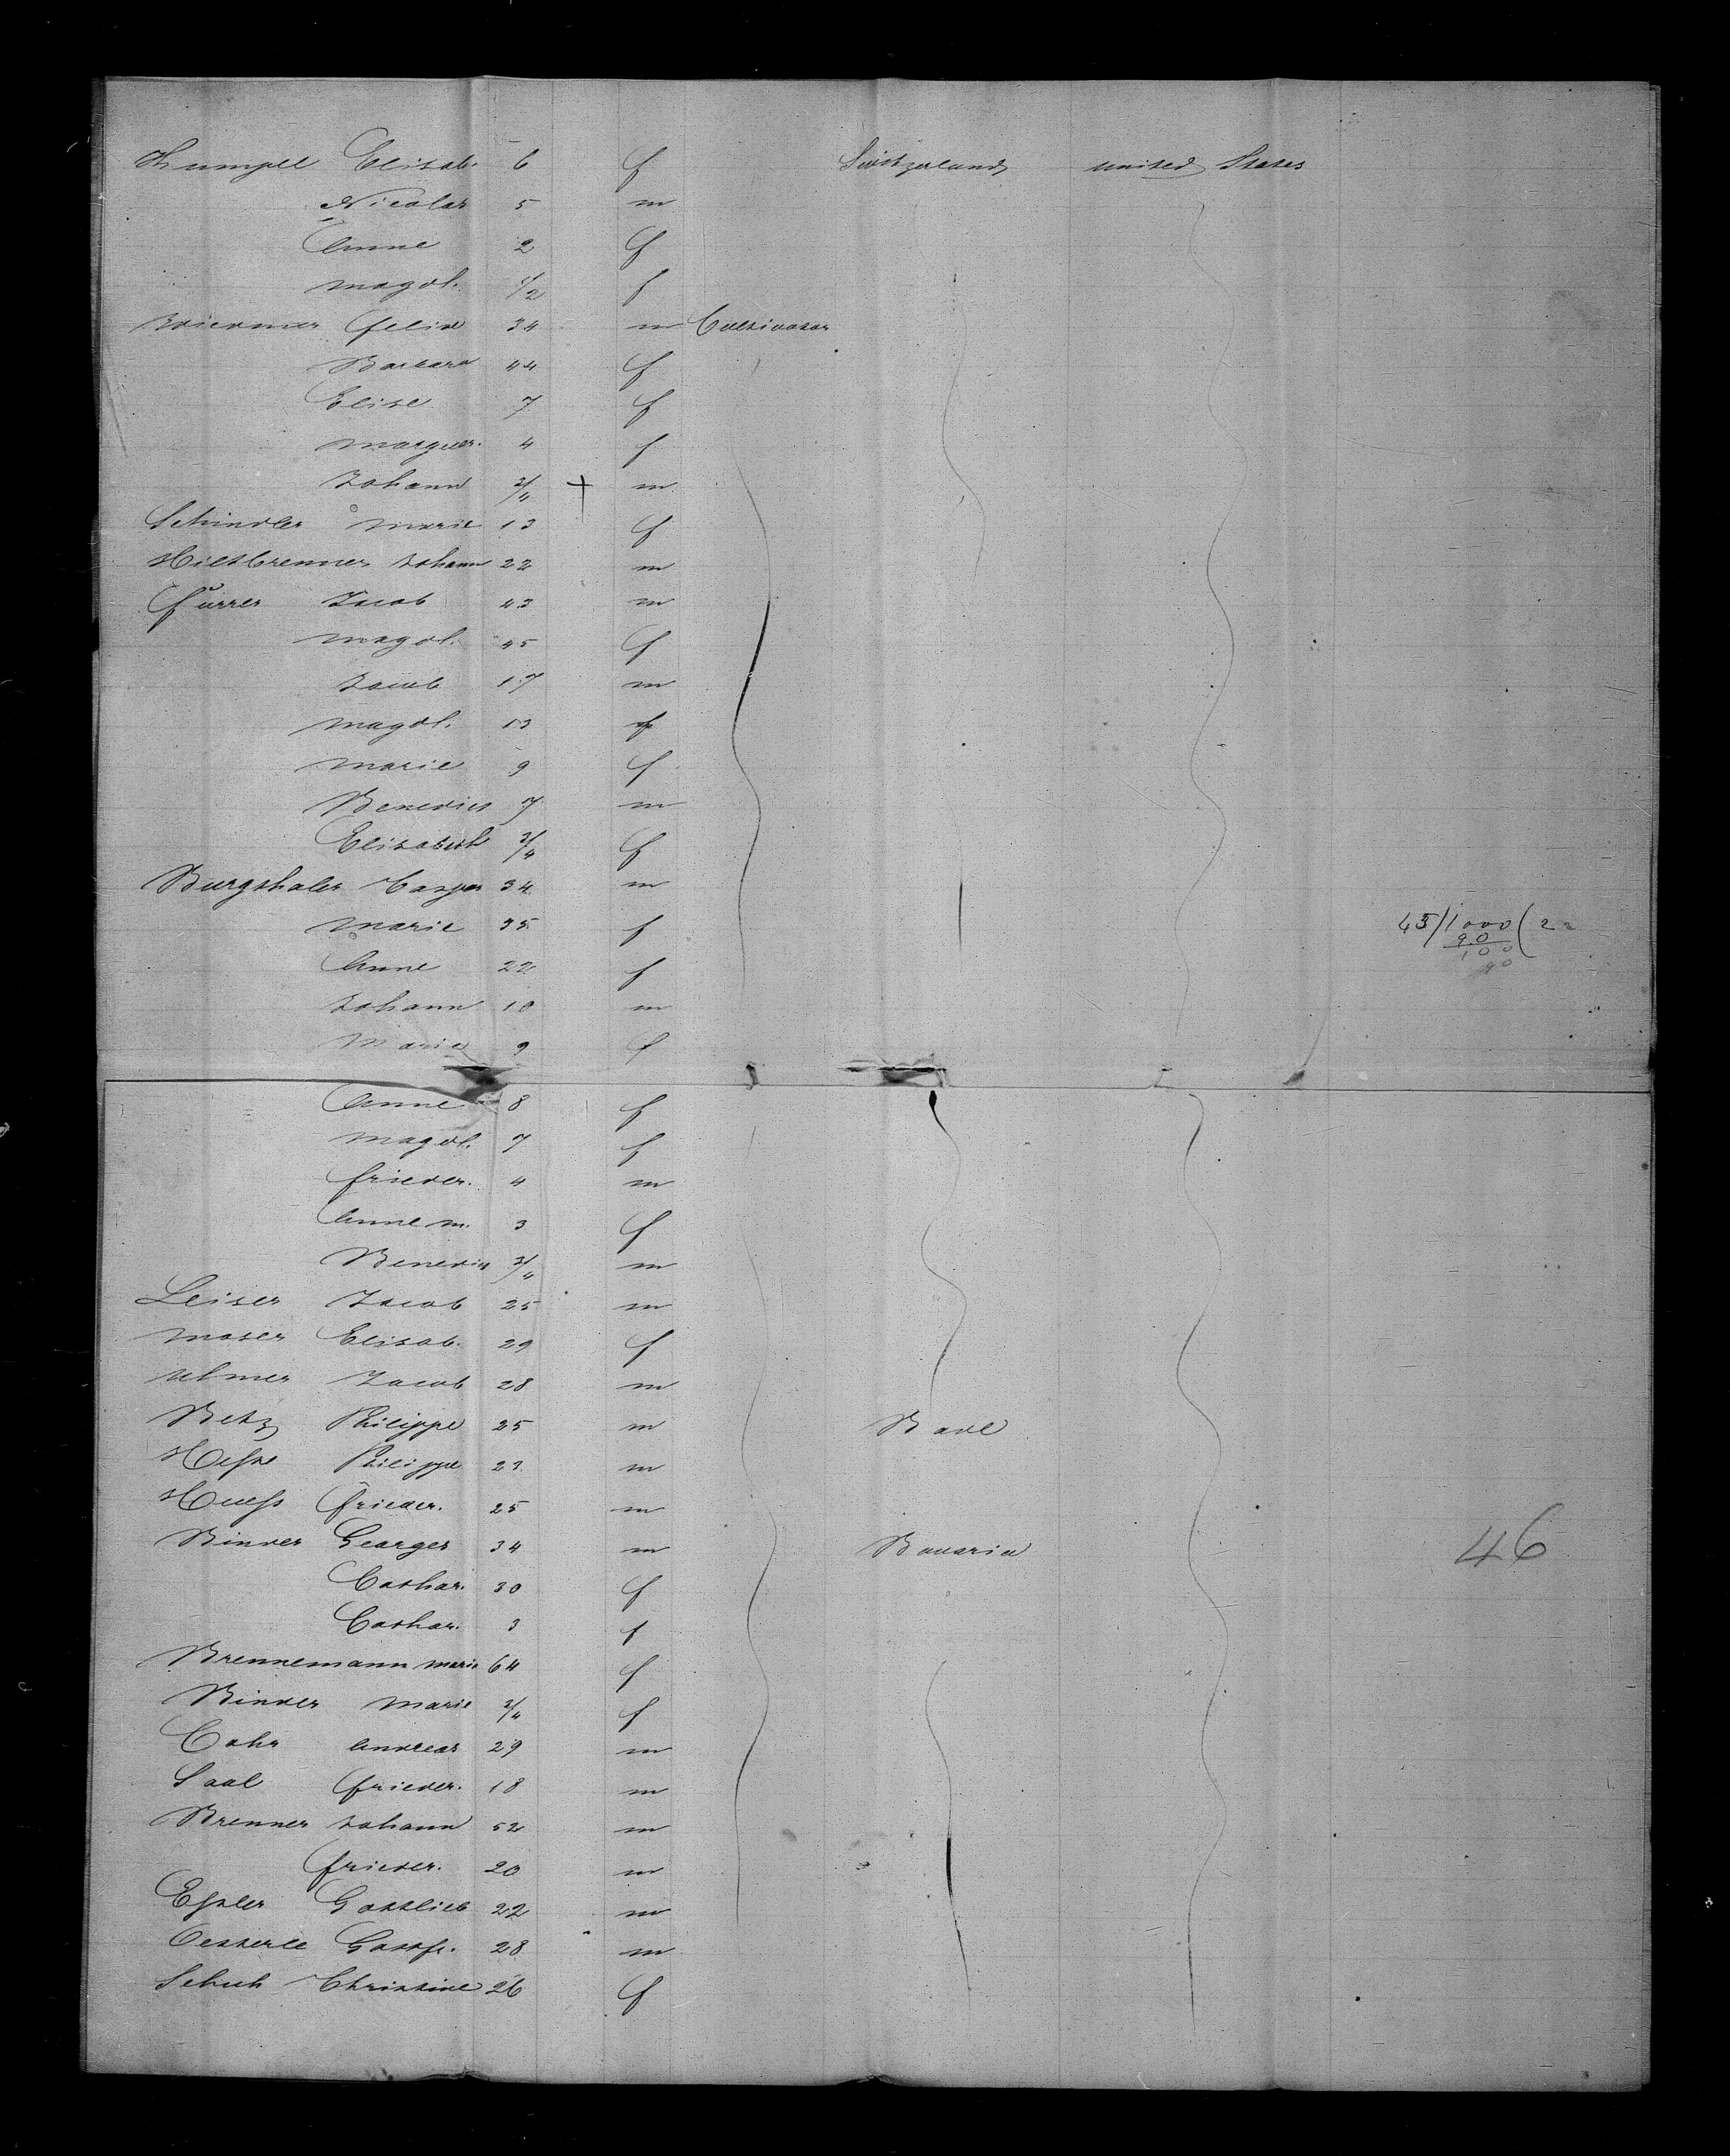 Elisab. 6 f Switzerland united States
Nicolas 5 m
Anne 2 f
magdl. 1/2 f
Felix 34 m Cultivator
Barbara 44 f
Elise 7 f
marguer. 4 f
Johann 3/4 + m
Schindler marie 13 f
Hiltbrenner Johann 22 m
Furrer Jacob 43 m
magdl. 45 f
Jacob 17 m
magdl. 13 f
marie 9 f
Benedict 7 m
Elisabeth 3/4 f
Burgthaler Casper 34 m
marie 35 f
Anne 22 f
Johann 10 m
Marie 9 f
45/1000(22
90
100
90
Anne 8 f
magdl. 7 f
frieder. 4 m
Anne m. 3 f
Benedict 3/4 m
Leiser Jacob 25 m
moser Elisab. 29 f
ulmer Jacob 28 m
Betz Philippe 25 m Bade
Philippe 23 m
Huess frieder. 25 m
Binder Georges 34 m Bavaria
46
Cathar. 30 f
Cathar. 3 f
Brennemann marie 64 f
Binder marie 3/4 f
Andreas 29 m
Saal frieder. 18 m
Brenner Johann 52 m
frieder. 20 m
Essler Gottlieb 22 m
Oesterle Gottfr. 28 m
Schuh Christine 26 f